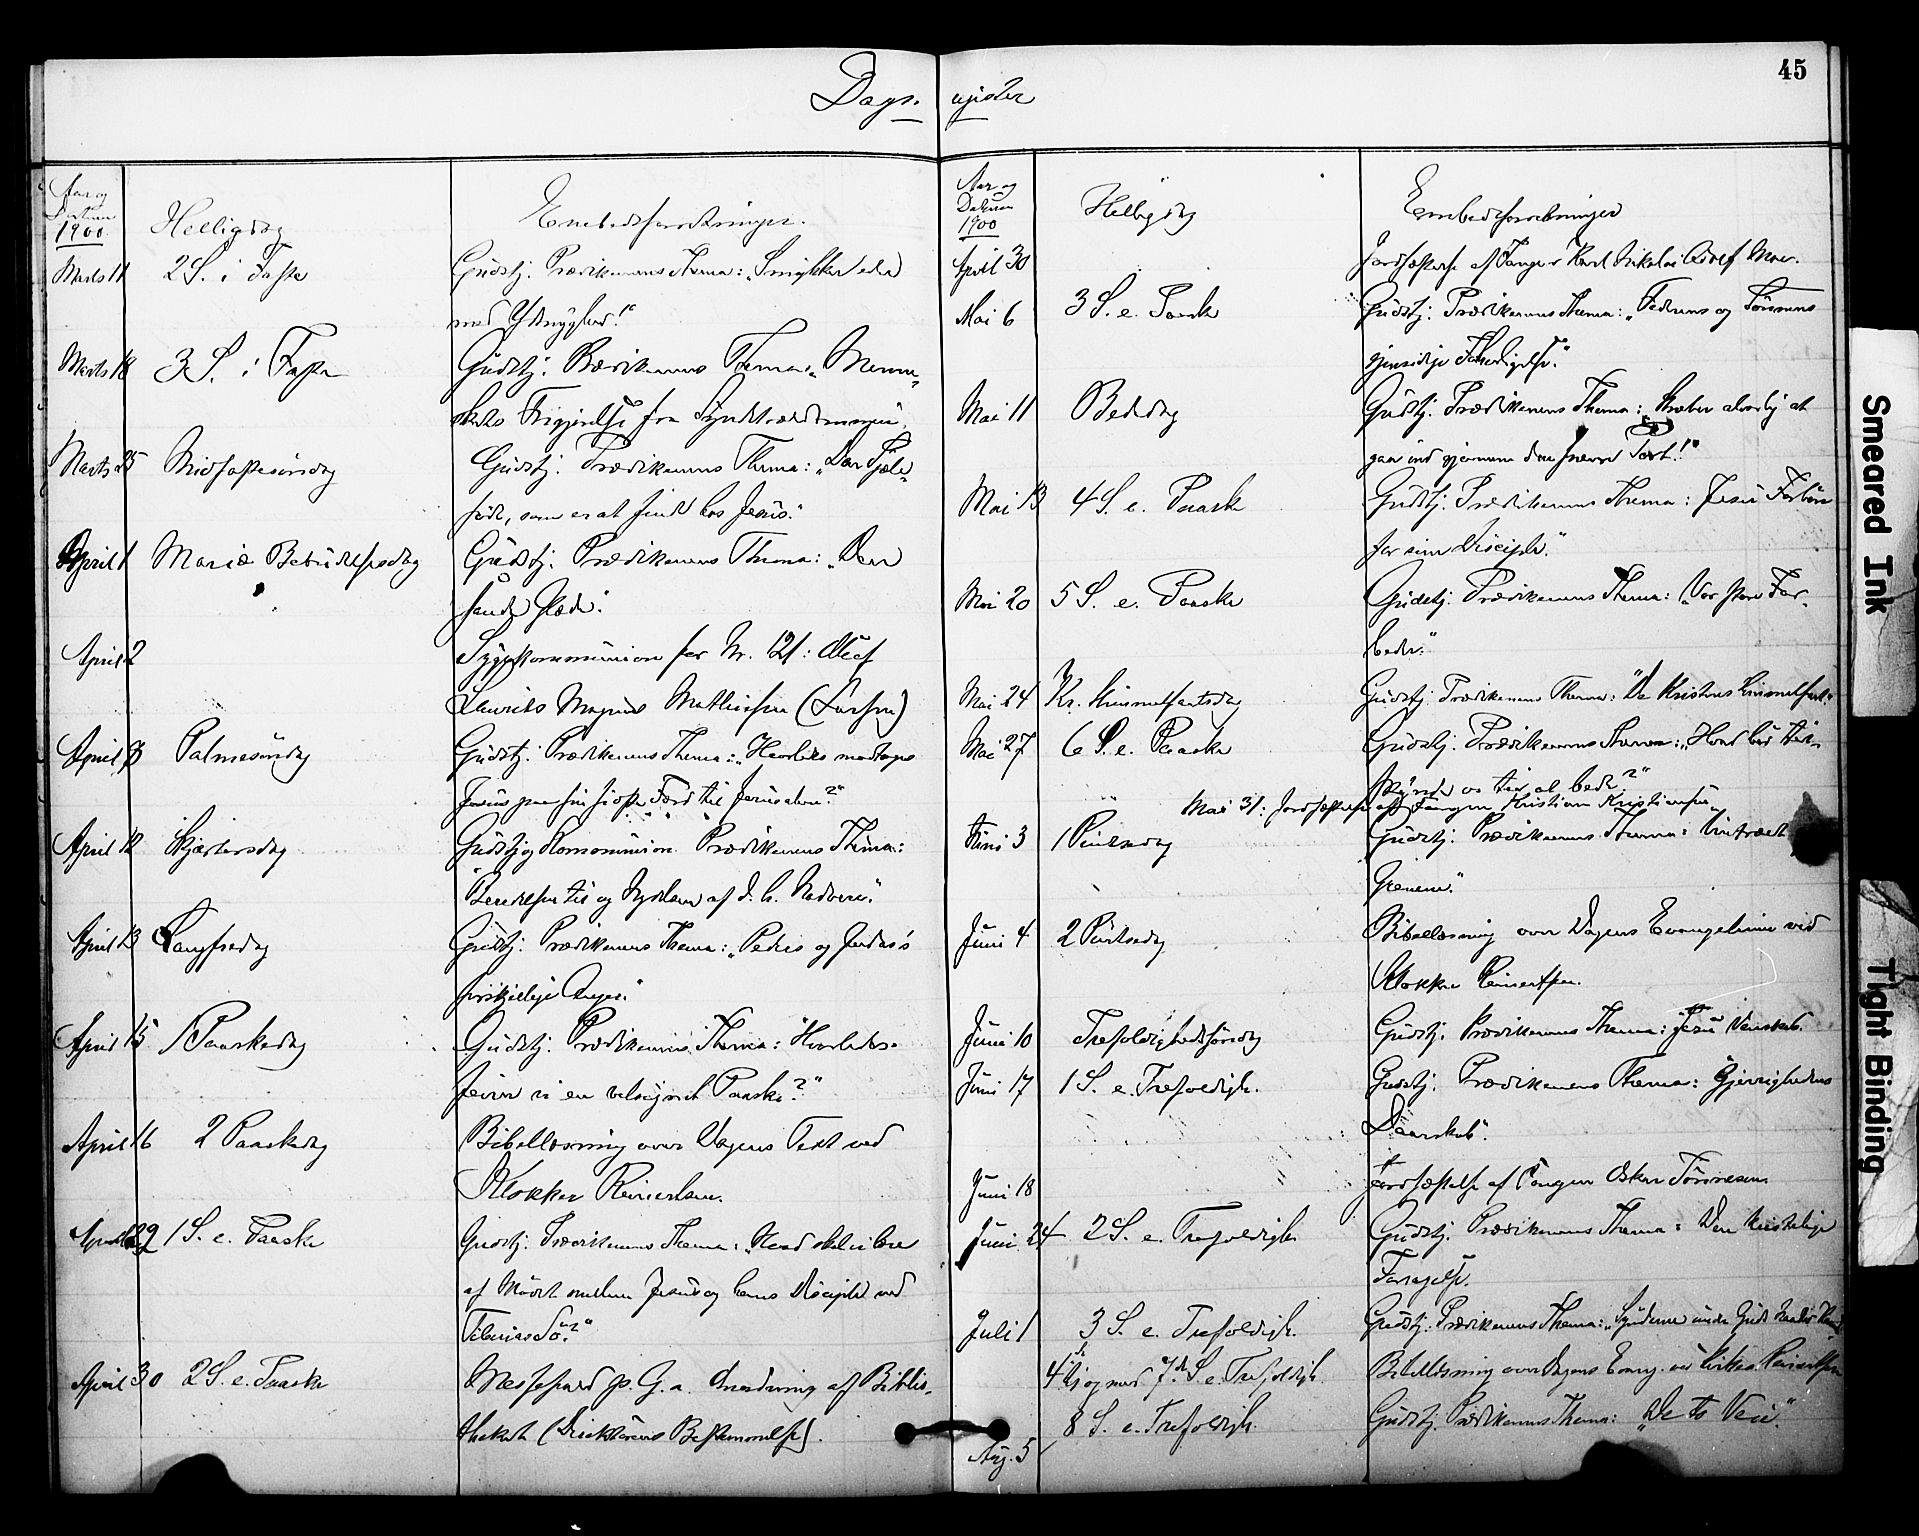 Dagsregister
45
Aar og
Datum
1900.
Helligdag
Embedsforretninger.
Marts 11
2 S. i Faste
Gudstj. Prædikenens Thema: „Smykker eder
med Ydmyghed!"
Marts 18
3 S. i Faste
Gudstj. Prædikenens Thema: „Menne-
skets Frigjørelse fra Syndetrældommen".
Marts 25
Midfastesøndag
Gudstj. Prædikenens Thema: „Den Sjæle-
føde, som er at finde hos Jesus."
April 1
Mariæ Bebudelsesdag
Gudstj. Prædikenens Thema: „Den
sande Glæde."
April 2
Sygekommunion for Nr. 121: Oluf
Laurits Magnus Mathiesen (Larsen)
April 8
Palmesøndag
Gudstj. Prædikenens Thema: „Hvorledes modtages
Jesus paa sin sidste Færd til Jerusalem?"
April 12
Skjærtorsdag
Gudstj. og Kommunion. Prædikenens Thema:
"Beredelsen til og Nydelsen af d. h. Nadvere."
April 13
Langfredag
Gudstj. Prædikenens Thema: „Peders og Judas's
forskjellige Anger."
April 15
1 Paaskedag
Gudstj. Prædikenens Thema: "Hvorledes
feirer vi en velsignet Paaske?"
April 16
2 Paaskedag
Bibellæsning over Dagens Text ved
Klokker Reinertsen.
April 22
1 S. e. Paaske
Gudstj. Prædikenens Thema: „Hvad skal vi lære
af Mødet mellem Jesus og hans Disciple ved
Tiberias Sø?"
April 30
2 S. e. Paaske
Messefald p. G. a. Anordning af Biblio-
theket (Direktørens Bestemmelse).
Aar og
Datum
1900
Helligdag
Embedsforretninger
April 30
Jordfæstelse af Fange Karl Nikolai Adolf Moe.
Mai 6
3 S. e. Paaske
Gudstj. Prædikenens Thema: „Faderens og Sønnens
gjensidige Herliggjørelse."
Mai 11
Bededag
Gudstj. Prædikenens Thema: Stræber alvorlig at
gaa ind gjennem den snevre Port!"
Mai 13
4 S. e. Paaske
Gudstj. Prædikenens Thema: Jesu Forbøn
for sine Disciple."
Mai 20
5 S. e. Paaske
Gudstj. Prædikenens Thema: „Vor store For-
beder."
Mai 24
Kr. Himmelfartsdag
Gudstj. Prædikenens Thema: "De Kristnes Himmelfart."
Mai 27
6 S. e. Paaske
Gudstj. Prædikenens Thema: „Hvad bør til-
skynde os til at bede?"
Mai 31: Jordfæstelse af Fangen Kristian Kristiansen
Juni 3
1 Pintsedag
Gudstj. Prædikenens Thema: Vintræet
Grenene."
Juni 4
2 Pintsedag
Bibellæsning over Dagens Evangelium ved
Klokker Reinertsen.
Juni 10
Trefoldighedssøndag
Gudstj. Prædikenens Thema: Jesu Venskab.
Juni 17
1 S. e. Trefoldigh.
Gudstj. Prædikenens Thema: Gjerrighedens
Daarskab".
Juni 18
Jordfæstelse af Fangen Oskar Tørresen
Juni 24
2 S. e. Trefoldigh.
Gudstj. Prædikenens Thema: Den kristelige
Forsagelse.
Juli 1
3 S. e. Trefoldigh.
Gudstj. Prædikenens Thema: „Synderne under Guds Naades
4de til og med 7de S. e. Trefoldigh.
Bibellæsning over Dagens Evang. ved Reinertsen
Aug. 5
8 S. e. Trefoldigh.
Gudstj. Prædikenens Thema: „De to Veie"
Smeared Ink
Tight Binding